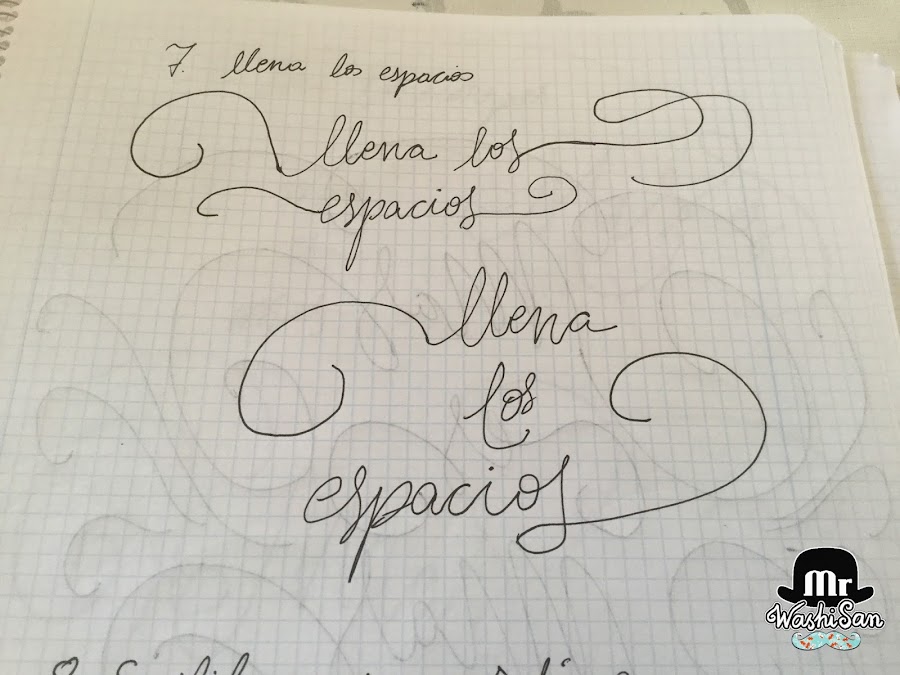 7. llena los espacios
llena los
espacios
llena
los
espacios
Mr
WashiSan